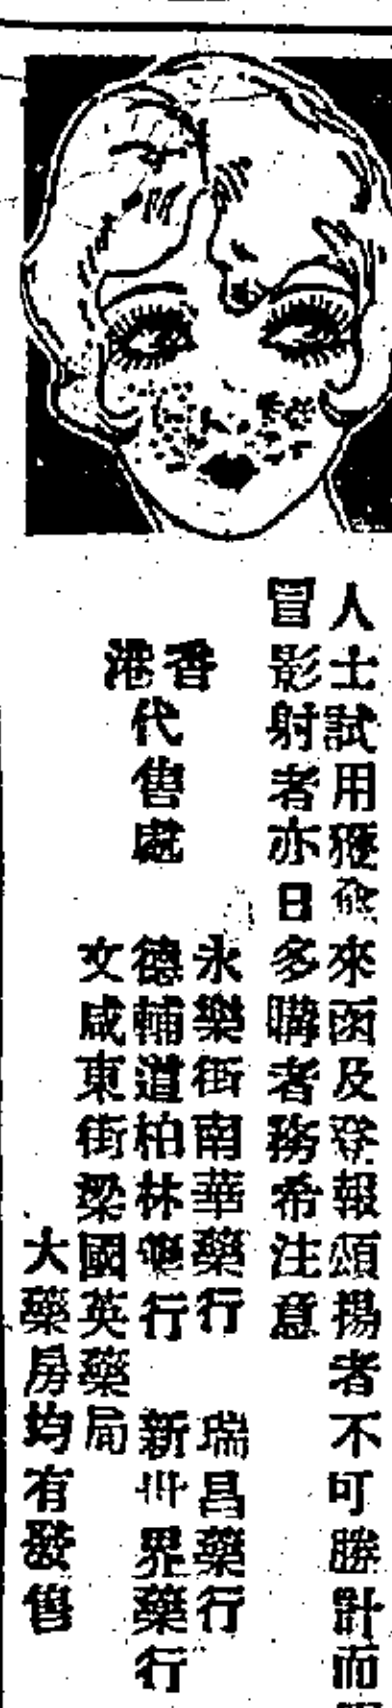 人士試用獲愈來函及登報頌揚者不可勝計而
冒影射者亦日多購者務希注意
香港
代售處
永樂街南華藥行 瑞昌藥行
德輔道柏林藥行 新世界藥行
文咸東街梁國英藥局
大藥房均有發售